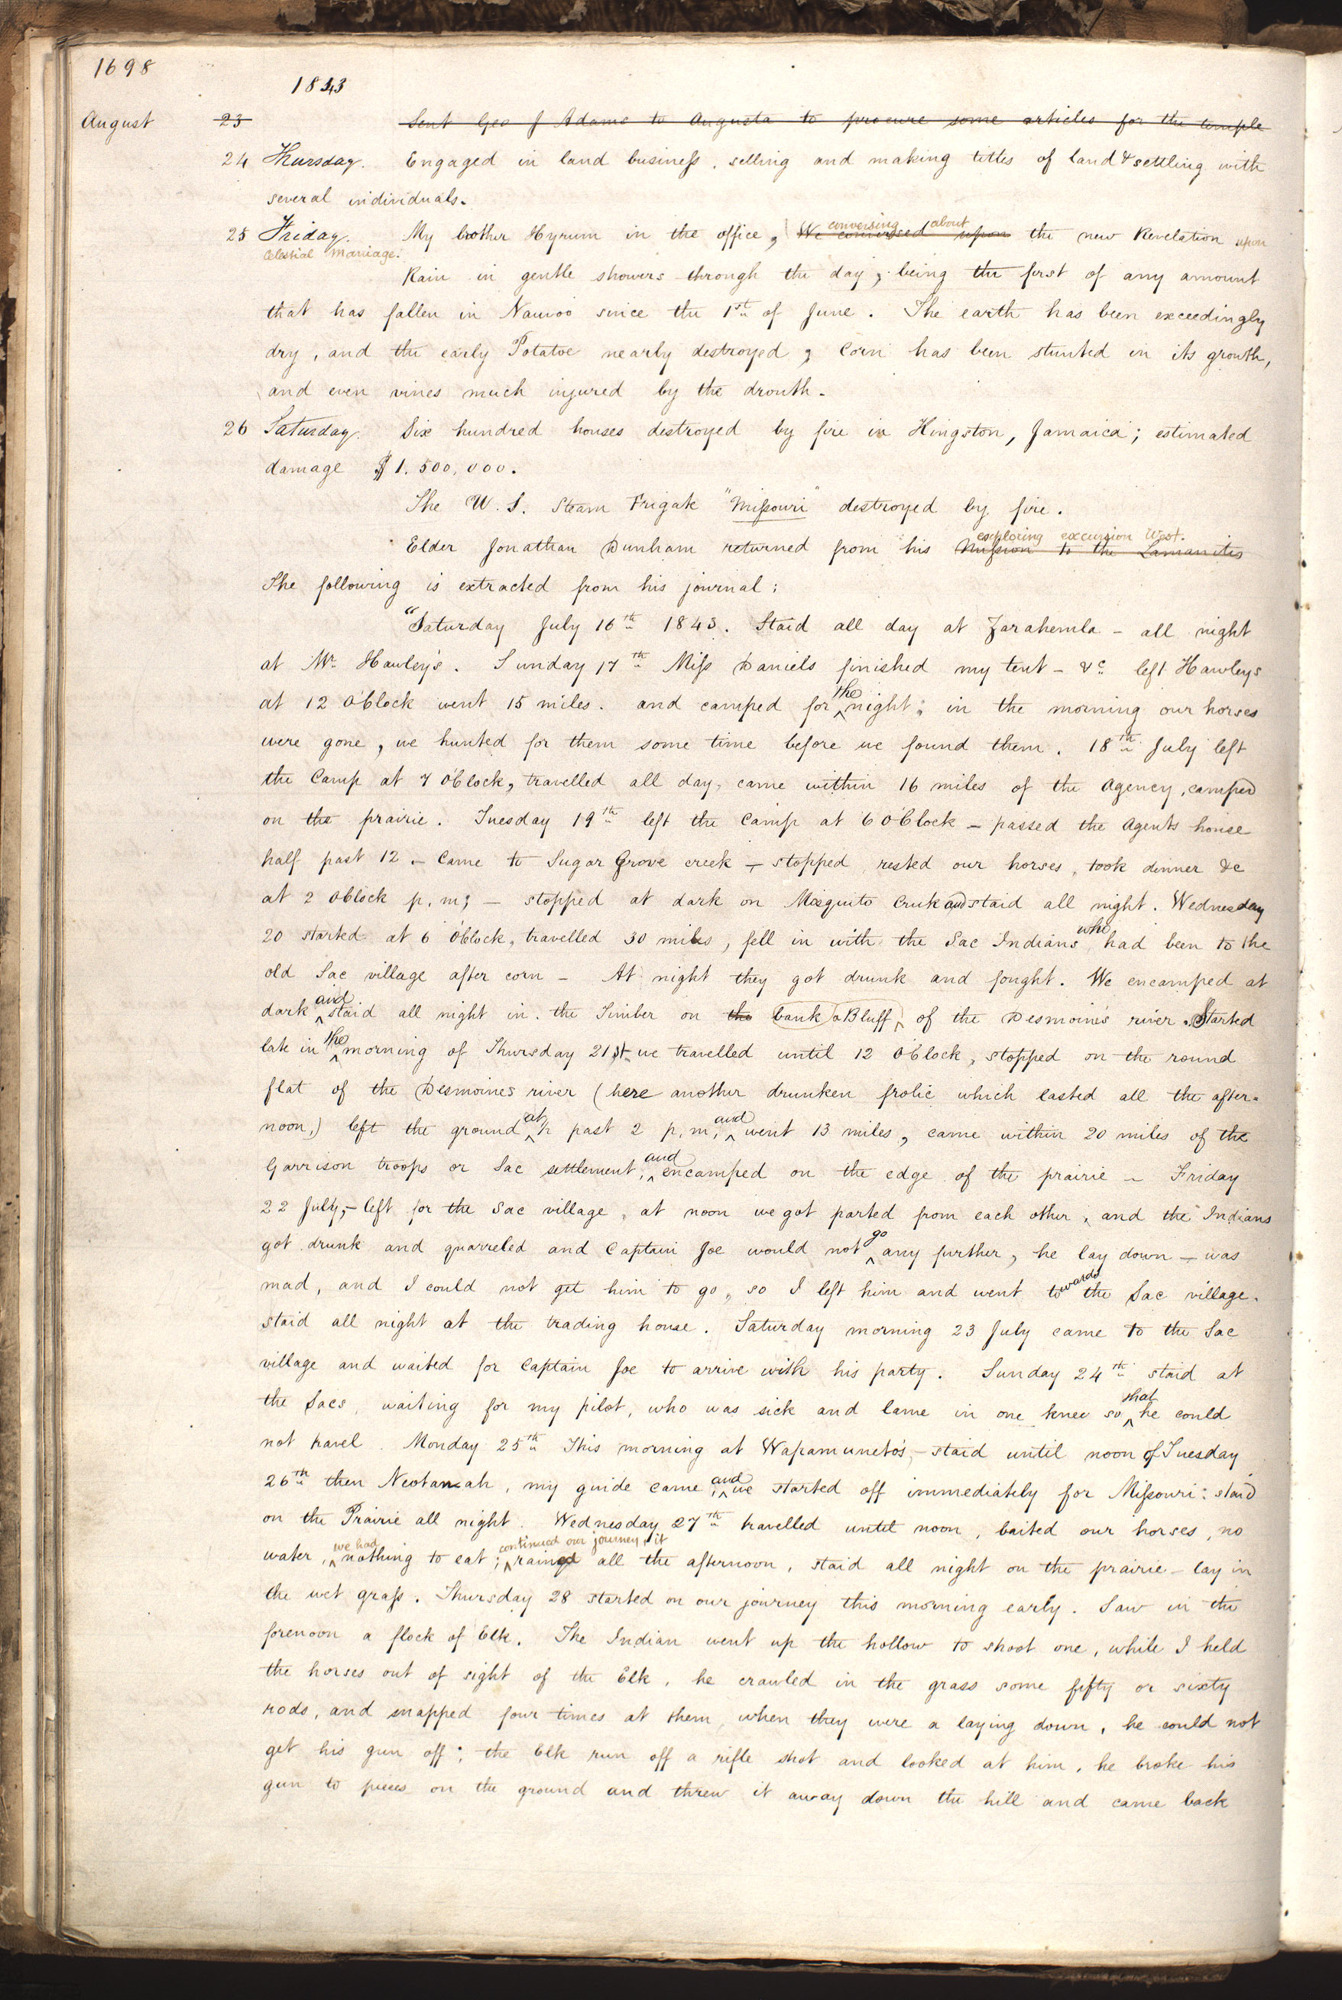 1698
1843
August 23 Sent Geo J Adams to Augusta to procure some articles for the temple
24 Thursday. Engaged in land business, selling and making titles of land & settling with
several individuals.
25 Friday. My brother Hyrum in the office, We conversed upon conversing about the new Revelation upon
Celestial Marriage.
Rain in gentle showers through the day, being the first of any amount
that has fallen in Nauvoo since the 1st of June. The earth has been exceedingly
dry, and the early Potatoe nearly destroyed, Corn has been stunted in its growth,
and even vines much injured by the drouth.
26 Saturday. Six hundred houses destroyed by fire in Kingston, Jamaica; estimated
damage $1.500,000.
The U. S. Steam Frigate "Missouri" destroyed by fire.
Elder Jonathan Dunham returned from his Mission to the Lamanites exploring excursion West.
The following is extracted from his journal;
"Saturday July 16th 1843. Staid all day at Zarahemla – all night
at Mr. Hawley's. Sunday 17th Miss Daniels finished my tent – &c left Hawleys
at 12 o'clock went 15 miles. and camped for the night; in the morning our horses
were gone, we hunted for them some time before we found them. 18th July left
the Camp at 7 o'clock, travelled all day, came within 16 miles of the Agency, camped
on the prairie. Tuesday 19th left the Camp at 6 o'Clock – passed the Agents house
half past 12 – Came to Sugar Grove creek – stopped, rested our horses, took dinner &c
at 2 oClock p. m; – stopped at dark on Mosquito Creek and staid all night. Wednesday
20 started at 6 o'Clock, travelled 30 miles, fell in with the Sac Indians who had been to the
old Sac village after corn – At night they got drunk and fought. We encamped at
dark and staid all night in the Timber on the bank a Bluff of the Desmoines river. Started
late in the morning of Thursday 21st we travelled until 12 o'Clock, stopped on the round
flat of the Desmoines river (here another drunken frolic which lasted all the after-
noon,) left the ground at ½ past 2 p. m, and went 13 miles, came within 20 miles of the
Garrison troops or Sac settlement, and encamped on the edge of the prairie – Friday
22 July, – left for the Sac village, at noon we got parted from each other, and the Indians
got drunk and quarreled and Captain Joe would not go any further, he lay down – was
mad, and I could not get him to go, so I left him and went towards the Sac village.
staid all night at the trading house. Saturday morning 23 July came to the Sac
village and waited for Captain Joe to arrive with his party. Sunday 24th staid at
the Sacs, waiting for my pilot, who was sick and lame in one knee so that he could
not travel. Monday 25th This morning at Wapamuneto's, – staid until noon of Tuesday
26th then Neotanah, my guide came, and we started off immediately for Missouri: staid
on the Prairie all night. Wednesday 27th travelled until noon, baited our horses, no
water, we had nothing to eat; continued our journey, it rained all the afternoon, staid all night on the prairie – lay in
the wet grass. Thursday 28 started on our journey this morning early. Saw in the
forenoon a flock of Elk. The Indian went up the hollow to shoot one, while I held
the horses out of sight of the Elk, he crawled in the grass some fifty or sixty
rods, and snapped four times at them, when they were a laying down, he could not
get his gun off; the Elk run off a rifle shot and looked at him, he broke his
gun to pieces on the ground and threw it away down the hill and came back